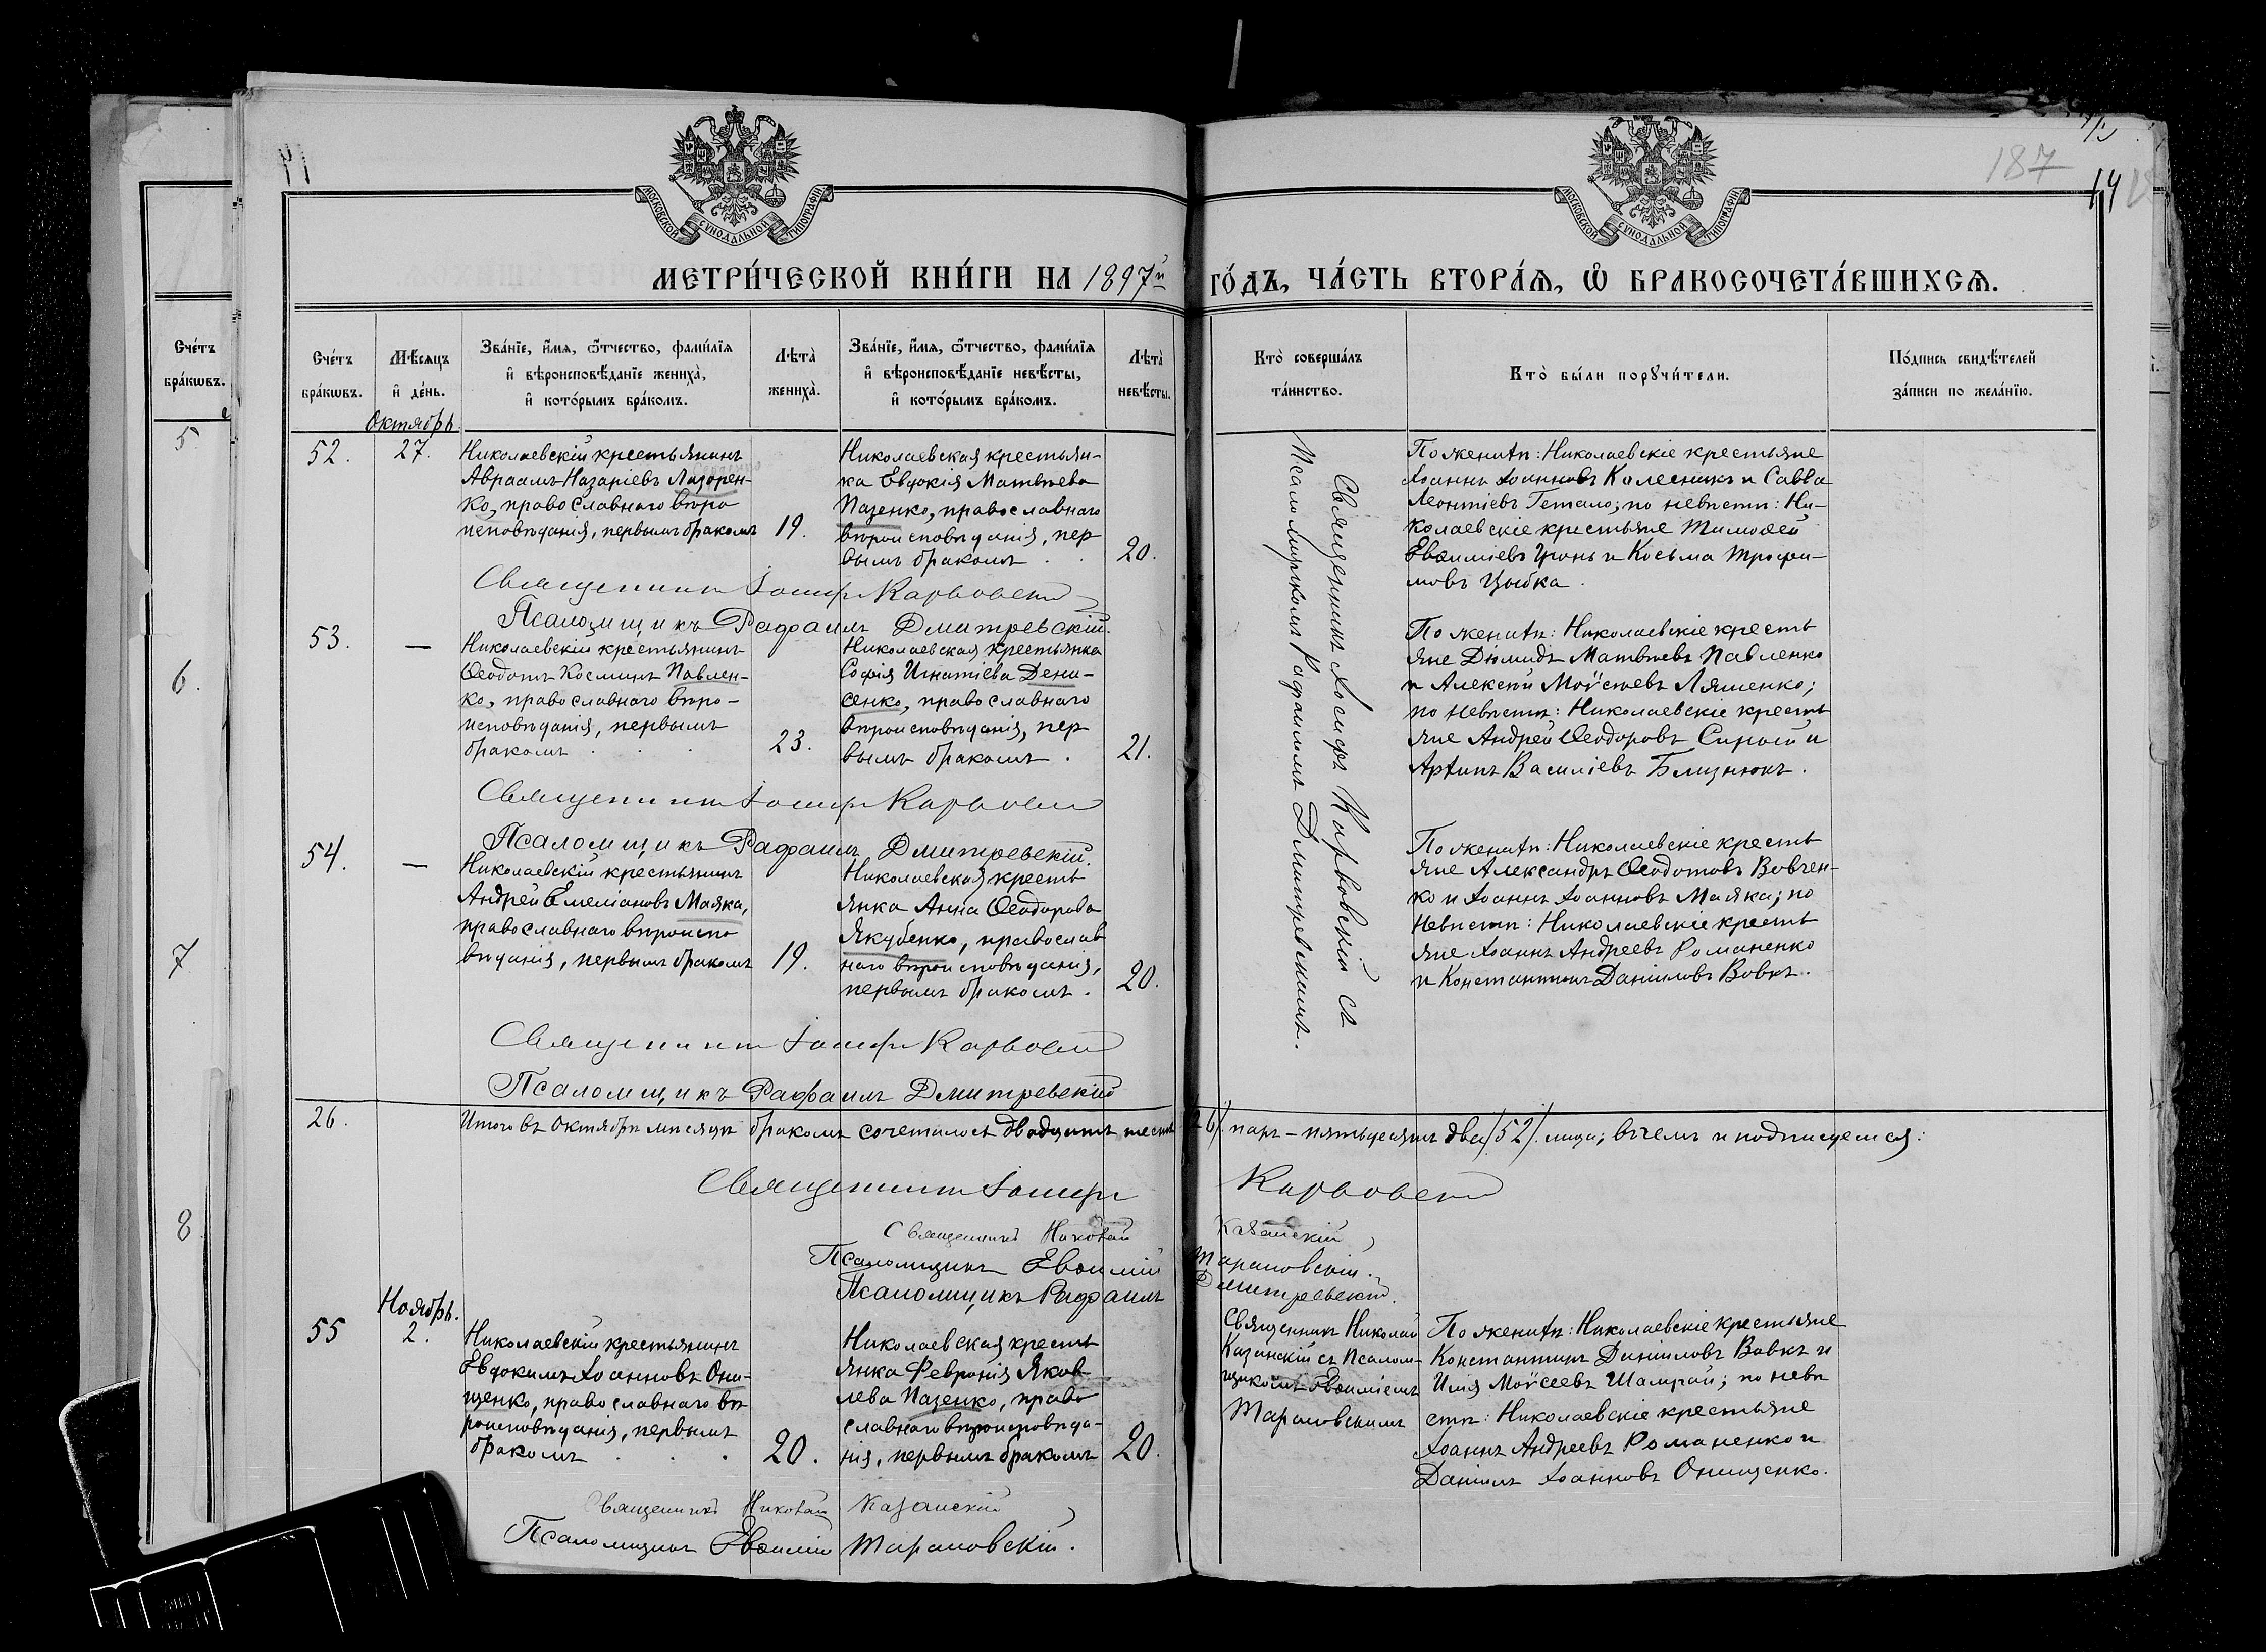 МОСКОВСКОЙ СУНОДАЛЬНОЙ ТИПОГРАФІИ
МОСКОВСКОЙ СУНОДАЛЬНОЙ ТИПОГРАФІИ
187
14
МЕТРИ́ЧЕСКОЙ КНИ́ГИ НА 1897й ГО́ДЪ, ЧА́СТЬ ВТОРА́Я, Ѡ БРАКОСОЧЕТА́ВШИХСЯ.
Сче́тъ бра́кѡвъ.
5
6.
7
8
Сче́тъ бра́кѡвъ.
Мѣ́сяцъ и҆ де́нь.
Зва́нїе, и҆́мя, ѻ҆́тчество, фами́лїя и҆ вѣроисповѣ́данїе жениха̀, и҆ кото́рымъ бра́комъ.
Лѣта̀ жениха̀.
Зва́нїе, и҆́мя, ѻ҆́тчество, фами́лїя и҆ вѣроисповѣ́данїе невѣ́сты, и҆ кото́рымъ бра́комъ.
Лѣта̀ невѣ́сты.
Кто̀ соверша́лъ та́инство.
Кто̀ бы́ли порꙋчи́тели.
По́дпись свидѣ́телей за́писи по жела́нїю.
Октябрь
52.
27.
Николаевскій крестьянинъ
Авраамъ Назаріевъ Лазорен-
ко, православнаго вѣро
исповѣданія, первымъ бракомъ
19.
Николаевская крестьян-
ка Евдокія Матвѣева
Пазенко, православнаго
вѣроисповѣданія, пер
вымъ бракомъ . .
20.
Священникъ Іосифъ Карвовскій съ
Псаломщикомъ Рафаиломъ Дмитревскимъ.
По женихѣ: Николаевскіе крестьяне
Іоаннъ Іоанновъ Колесникъ и Савва
Леонтіевъ Гетало; по невѣстѣ: Ни-
колаевскіе крестьяне Тимоѳей
Евѳиміевъ Гронь и Косьма Трофи-
мовъ Цыбка.
Священникъ Іосифъ Карвовскій
Псаломщикъ Рафаилъ Дмитревскій.
53.
—
Николаевскій крестьянинъ
Ѳеодотъ Косминъ Павлен-
ко, православнаго вѣро-
исповѣданія, первымъ
бракомъ . . .
23.
Николаевская крестьянка
Софія Игнатіева Дени-
сенко, православнаго
вѣроисповѣданія, пер
вымъ бракомъ .
21.
По женихѣ: Николаевскіе кресть
яне Діомидъ Матвѣевъ Павленко
и Алексѣй Моѵсеевъ Ляшенко;
по невѣстѣ: Николаевскіе кресть
яне Андрей Ѳеодоровъ Сирый и
Архипъ Василіевъ Близнюкъ.
Священникъ Іосифъ Карвовскій
Псаломщикъ Рафаилъ Дмитревскій.
54.
—
Николаевскій крестьянинъ
Андрей Емеліановъ Маяка,
православнаго вѣроиспо
вѣданія, первымъ бракомъ
19.
Николаевская кресть
янка Анна Ѳеодорова
Якубенко, православ
наго вѣроисповѣданія,
первымъ бракомъ.
20.
По женихѣ: Николаевскіе кресть
яне Александръ Ѳеодотовъ Вовчен-
ко и Іоаннъ Іоанновъ Маяка; по
невѣстѣ: Николаевскіе кресть
яне Іоаннъ Андреевъ Романенко
и Константинъ Даниловъ Вовкъ.
Священникъ Іосифъ Карвовскій
Псаломщикъ Рафаилъ Дмитревскій
26.
Итого въ Октябрѣ мѣсяцѣ бракомъ сочеталось двадцать шесть /26/ паръ – пятьдесятъ два /52/ лица; въ чемъ и подписуемся:
Священникъ Іосифъ Карвовскій
Священникъ Николай Казанскій
Псаломщикъ Евѳимій Тарановскій.
Псаломщикъ Рафаилъ Дмитревскій.
Ноябрь.
55
2.
Николаевскій крестьянинъ
Евдокимъ Іоанновъ Они-
щенко, православнаго вѣ
роисповѣданія, первымъ
бракомъ . . .
20.
Николаевская кресть
янка Февронія Яков
лева Пазенко, право
славнаго вѣроисповѣда-
нія, первымъ бракомъ
20.
Священникъ Николай
Казанскій съ Псалом-
щикомъ Евѳиміемъ
Тарановскимъ
По женихѣ: Николаевскіе крестьяне
Константинъ Даниловъ Вовкъ и
Илія Моѵсеевъ Шамрай; по невѣ
стѣ: Николаевскіе крестьяне
Іоаннъ Андреевъ Романенко и
Даніилъ Іоанновъ Онищенко.
Священникъ Николай Казанскій
Псаломщикъ Евѳимій Тарановскій.